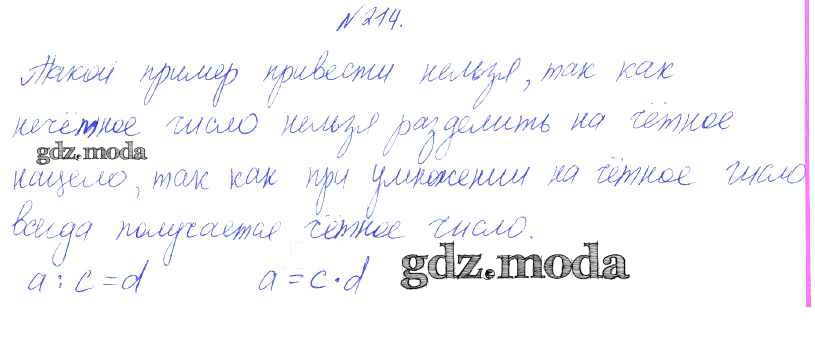 №214.
Такой пример привести нельзя, так как
нечётное число нельзя разделить на чётное
gdz.moda
нацело, так как при умножении на чётное число
всегда получается чётное число.
a : c = d a = c · d gdz.moda